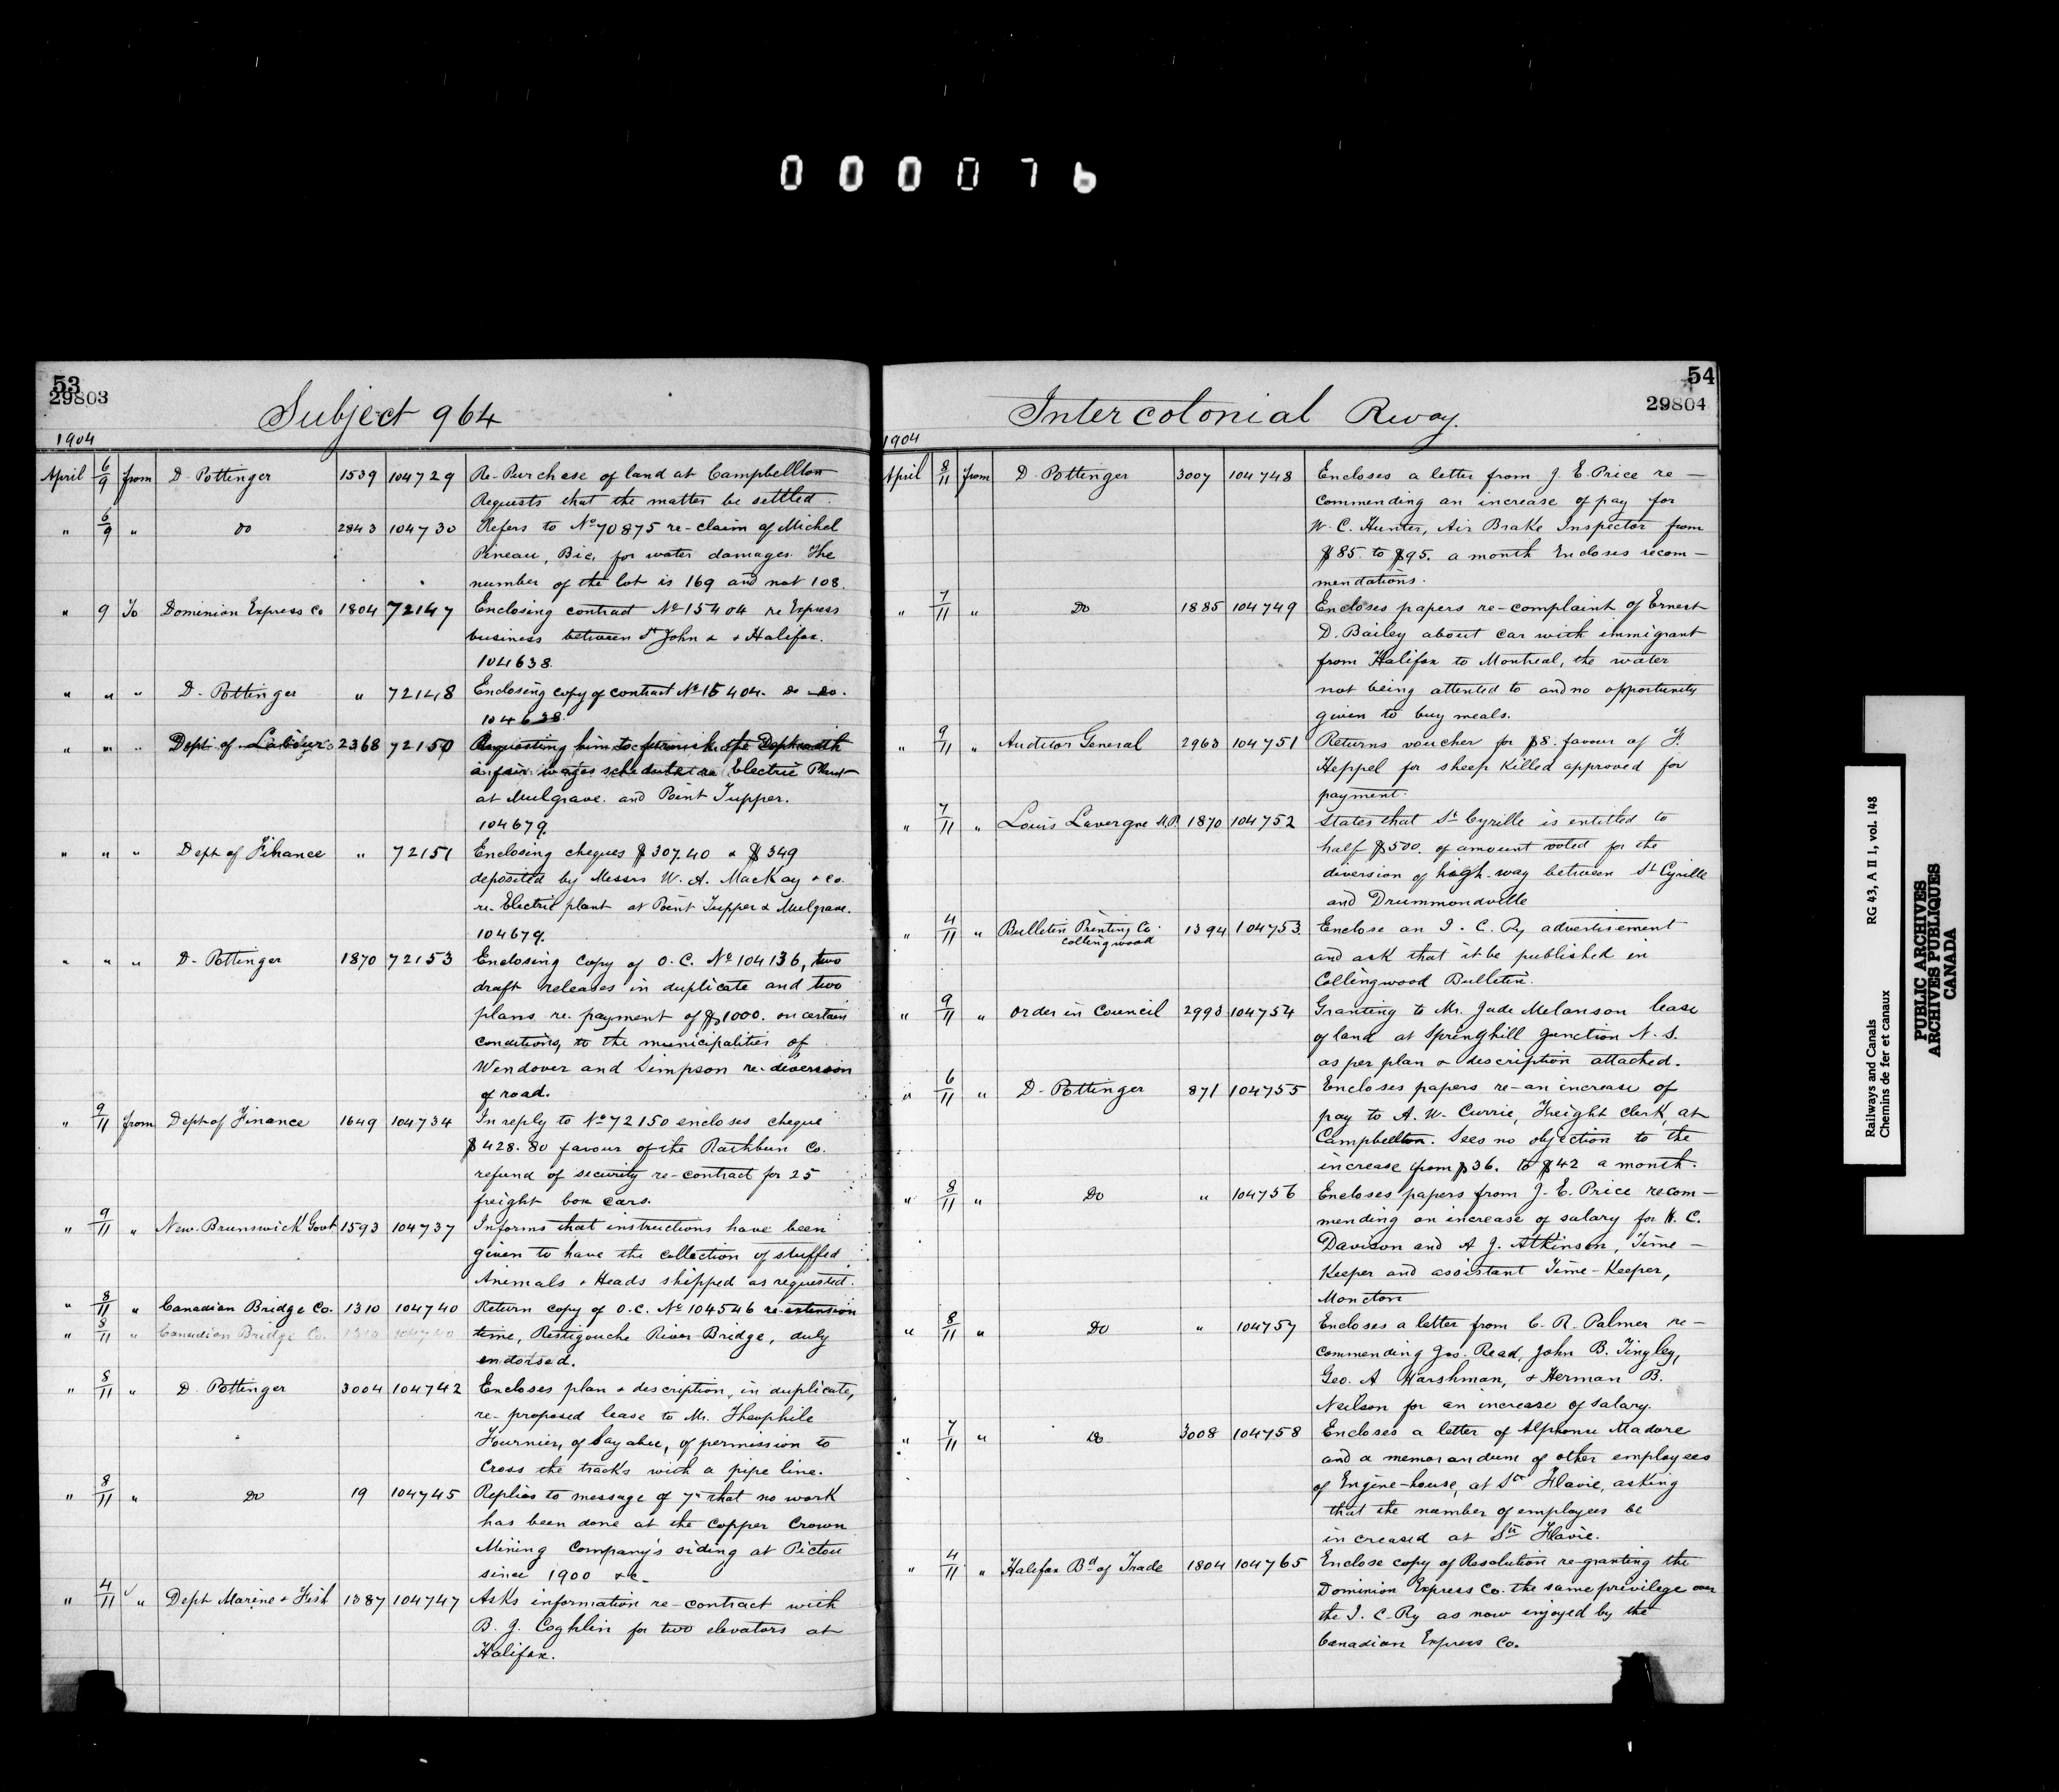 0 0 0 0 7 6
53
29803
Subject 964
1904
April 6/9 from D. Pottinger 1539 104729 Re-Purchase of land at Campbellton
Requests that the matter be settled.
" 6/9 " Do 2843 104730 Refers to No 70875 re-claim of Michel
Pineau, Bic, for water damages. The
number of the lot is 169 and not 108.
" 9 To Dominion Express Co 1804 72147 Enclosing contract No 15404 re Express
business between St John & & Halifax.
104638.
" " " D. Pottinger " 72148 Enclosing copy of contract No 15404. do do.
104638.
" " " Dept of Labour 2368 72150 Requesting him to furnish the Dept with
a fair wages schedule re Electric Plant
at Mulgrave. and Point Tupper.
104679.
" " " Dept of Finance " 72151 Enclosing cheques $307.40 & $349
deposited by Messrs W. A. MacKay & Co.
re-Electric plant at Point Tupper & Mulgrave.
104679.
" " " D. Pottinger 1870 72153 Enclosing copy of O.C. No 104136, two
draft releases in duplicate and two
plans re. payment of $1000. on certain
conditions, to the municipalities of
Wendover and Simpson re-diversion
of road.
" 9/11 from Dept of Finance 1649 104734 In reply to No 72150 encloses cheque
$428.80 favour of the Rathbun Co.
refund of security re-contract for 25
freight box cars.
" 9/11 " New Brunswick Govt 1593 104737 Informs that instructions have been
given to have the collection of stuffed
Animals & Heads shipped as requested.
" 8/11 " Canadian Bridge Co. 1310 104740 Return copy of O.C. No 104546 re-extension
" 8/11 " Canadian Bridge Co. 1310 104740 time, Restigouche River Bridge, duly
endorsed.
" 8/11 " D. Pottinger 3004 104742 Encloses plan & description, in duplicate,
re-proposed lease to Mr. Theophile
Fournier, of Sayabec, of permission to
Cross the tracks with a pipe line.
" 8/11 " Do 19 104745 Replies to message of 7" that no work
has been done at the Copper Crown
Mining Company's siding at Pictou
since 1900 &c-
" 4/11 " Dept Marine & Fish 1387 104747 Asks information re-contract with
B. J. Coghlin for two elevators at
Halifax.
54
29804
Intercolonial Rway.
1904
April 8/11 from D. Pottinger 3007 104748 Encloses a letter from J. E. Price re-
commending an increase of pay for
W. C. Hunter, Air Brake Inspector from
$85. to $95. a month Encloses recom-
mendations.
" 7/11 " Do 1885 104749 Encloses papers re-complaint of Ernest
D. Bailey about car with immigrant
from Halifax to Montreal, the water
not being attented to and no opportunity
given to buy meals.
" 9/11 " Auditor General 2963 104751 Returns voucher for $8. favour of F.
Heppel for sheep killed approved for
payment.
" 7/11 " Louis Lavergne M.P. 1870 104752 States that St Cyrille is entitled to
half $500. of amount voted for the
diversion of high-way between St Cyrille
and Drummondville
" 4/11 " Bulletin Printing Co. 1394 104753. Enclose an I. C. Ry advertisement
Collingwood
and ask that it be published in
Collingwood Bulletin.
" 9/11 " Order in Council 2993 104754 Granting to Mr. Jude Melanson lease
of land at Springhill Junction N. S.
as per plan & description attached.
" 6/11 " D. Pottinger 871 104755 Encloses papers re-an increase of
pay to A. W. Currie, Freight clerk, at
Campbellton. Sees no objection to the
increase from $36. to $42 a month.
" 8/11 " Do " 104756 Encloses papers from J. E. Price recom-
mending an increase of salary for H. C.
Davison and A. J. Atkinson, Time-
Keeper and assistant Time-Keeper,
Moncton
" 8/11 " Do " 104757 Encloses a letter from C. R. Palmer re-
commending Jas. Read, John B. Tingley,
Geo. A Harshman, & Herman B.
Neilson for an increase of salary.
" 7/11 " Do 3008 104758 Encloses a letter of Alphonse Madore
and a memorandum of other employees
of Engine-house, at Ste Flavie, asking
that the number of employees be
increased at Ste Flavie.
" 4/11 " Halifax Bd of Trade 1804 104765 Enclose copy of Resolution re-granting the
Dominion Express Co. the same privilege over
the I. C. Ry as now enjoyed by the
Canadian Express Co.
Railways and Canals RG 43, A II 1, vol. 148
Chemins de fer et canaux
PUBLIC ARCHIVES
ARCHIVES PUBLIQUES
CANADA